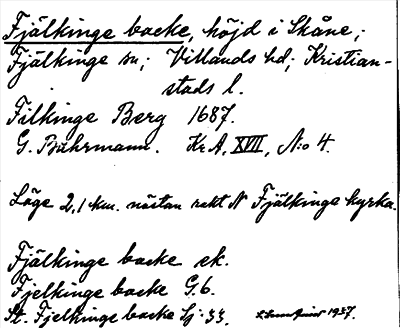 Fjälkinge backe, höjd i Skåne;
Fjälkinge sn; Villands hd; Kristian-
stads l.
Filkinge Berg 1687.
G. Buhrmann. Kr.A. XVII, N:o 4.
Läge 2,1 km. nästan rakt N Fjälkinge kyrka.
Fjälkinge backe ek.
Fjelkinge backe G.6.
St. Fjelkinge backe Lj: 33. 1937.